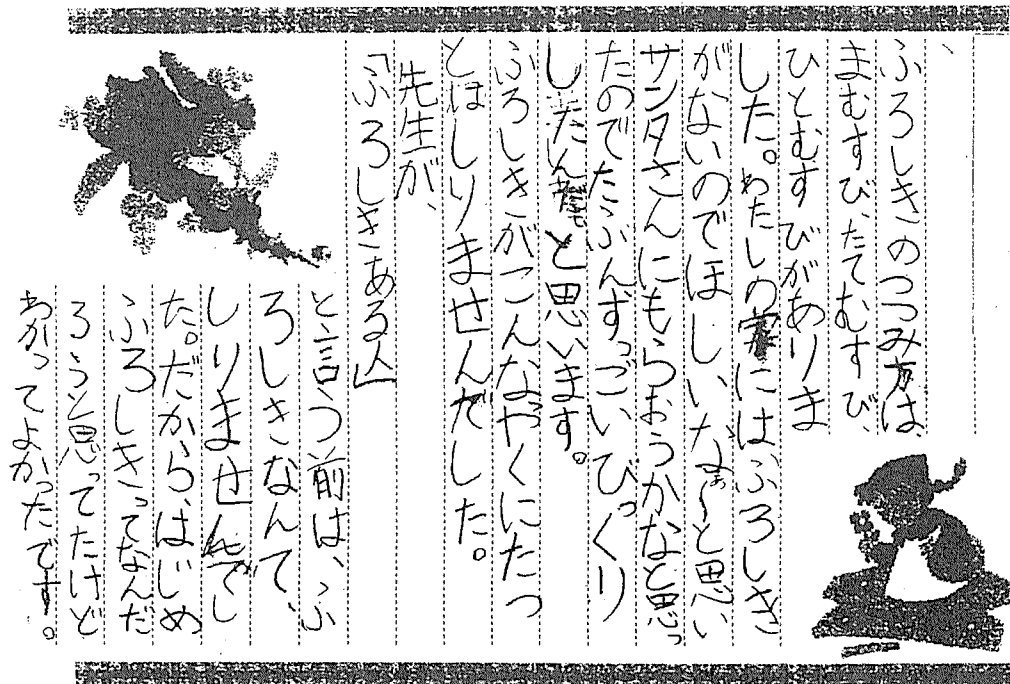 ふろしきのつつみ方は、
まむすび、たてむすび、
ひとむすびがありま
した。わたしの家にはふろしき
がないのでほしいなぁ〜と思い
サンタさんにもらおうかなと思っ
たのでたぶんすっごいびっくり
したんだ。と思います。
ふろしきがこんなやくにたつ
とはしりませんでした。
先生が、
「ふろしきある人」
と言う前は、ふ
ろしきなんて、
しりませんでし
た。だからはじめ
ふろしきってなんだ
ろうと思ってたけど
わかってよかったです。